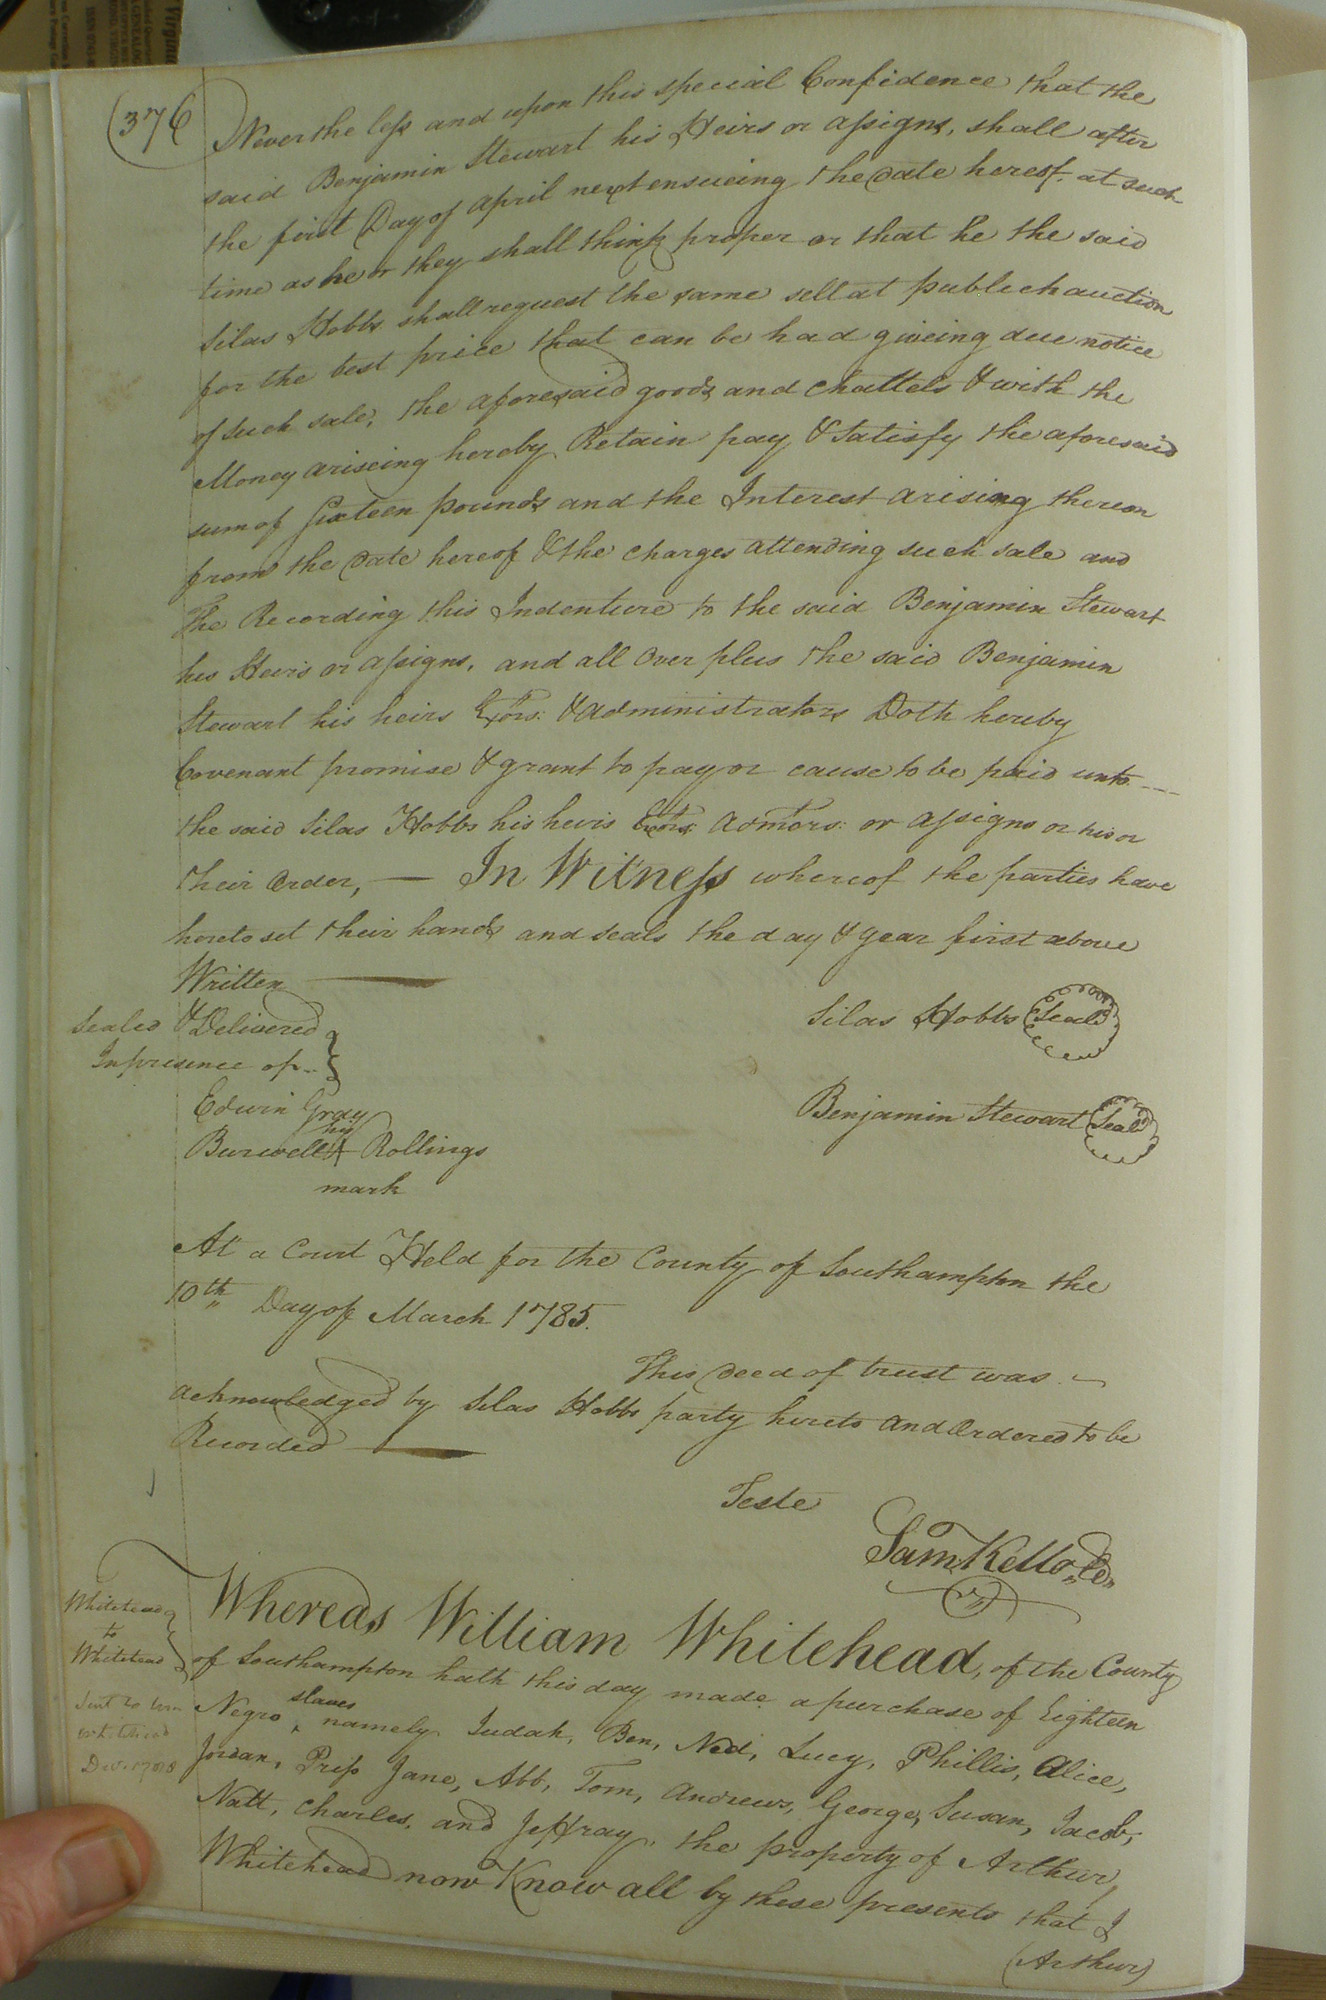 (376
Never the less and upon this special Confidence that the
said Benjamin Stewart his Heirs or assigns, shall after
the first Day of april next ensueing the date hereof. at such
time as he or they shall think proper or that he the said
Silas Hobbs shall request the same sell at publick auction
for the best price that can be had giveing due notice
of such sale, the aforesaid goods and chattels & with the
Money ariseing hereby Retain pay & Satisfy the aforesaid
sum of Sixteen pounds and the Interest arising thereon
from the date hereof & the charges attending such sale and
The Recording this Indenture to the said Benjamin Stewart
his Heirs or assigns, and all Over plus the said Benjamin
Stewart his heirs Exors: & administrators Doth hereby
Covenant promise & grant to pay or cause to be paid unto
the said Silas Hobbs his heirs Exors: admors: or assigns or his or
their order, — In Witness whereof the parties have
hereto set their hands and seals the day & year first above
Written
Sealed & Delivered
In presence of
Silas Hobbs (Seal)
Edwin Gray
Benjamin Stewart (Seal)
his
Burwell X Rollings
mark
At a Court Held for the County of Southampton the
10th Day of March 1785.
This deed of trust was
acknowledged by Silas Hobbs party hereto and Ordered to be
Recorded
Teste
Sam Kello Cl
Whitehead
to
Whitehead
Whereas William Whitehead, of the County
of Southampton hath this day made a purchase of Eighteen
Negro ^ slaves namely Judah, Ben, Ned, Lucy, Phillis, Alice,
Jordan, Priss Jane, Abb, Tom, Andrews, George, Susan, Jacob,
Natt, Charles, and Jeffray, the property of Arthur
Whitehead now Know all by these presents that I
(Arthur)